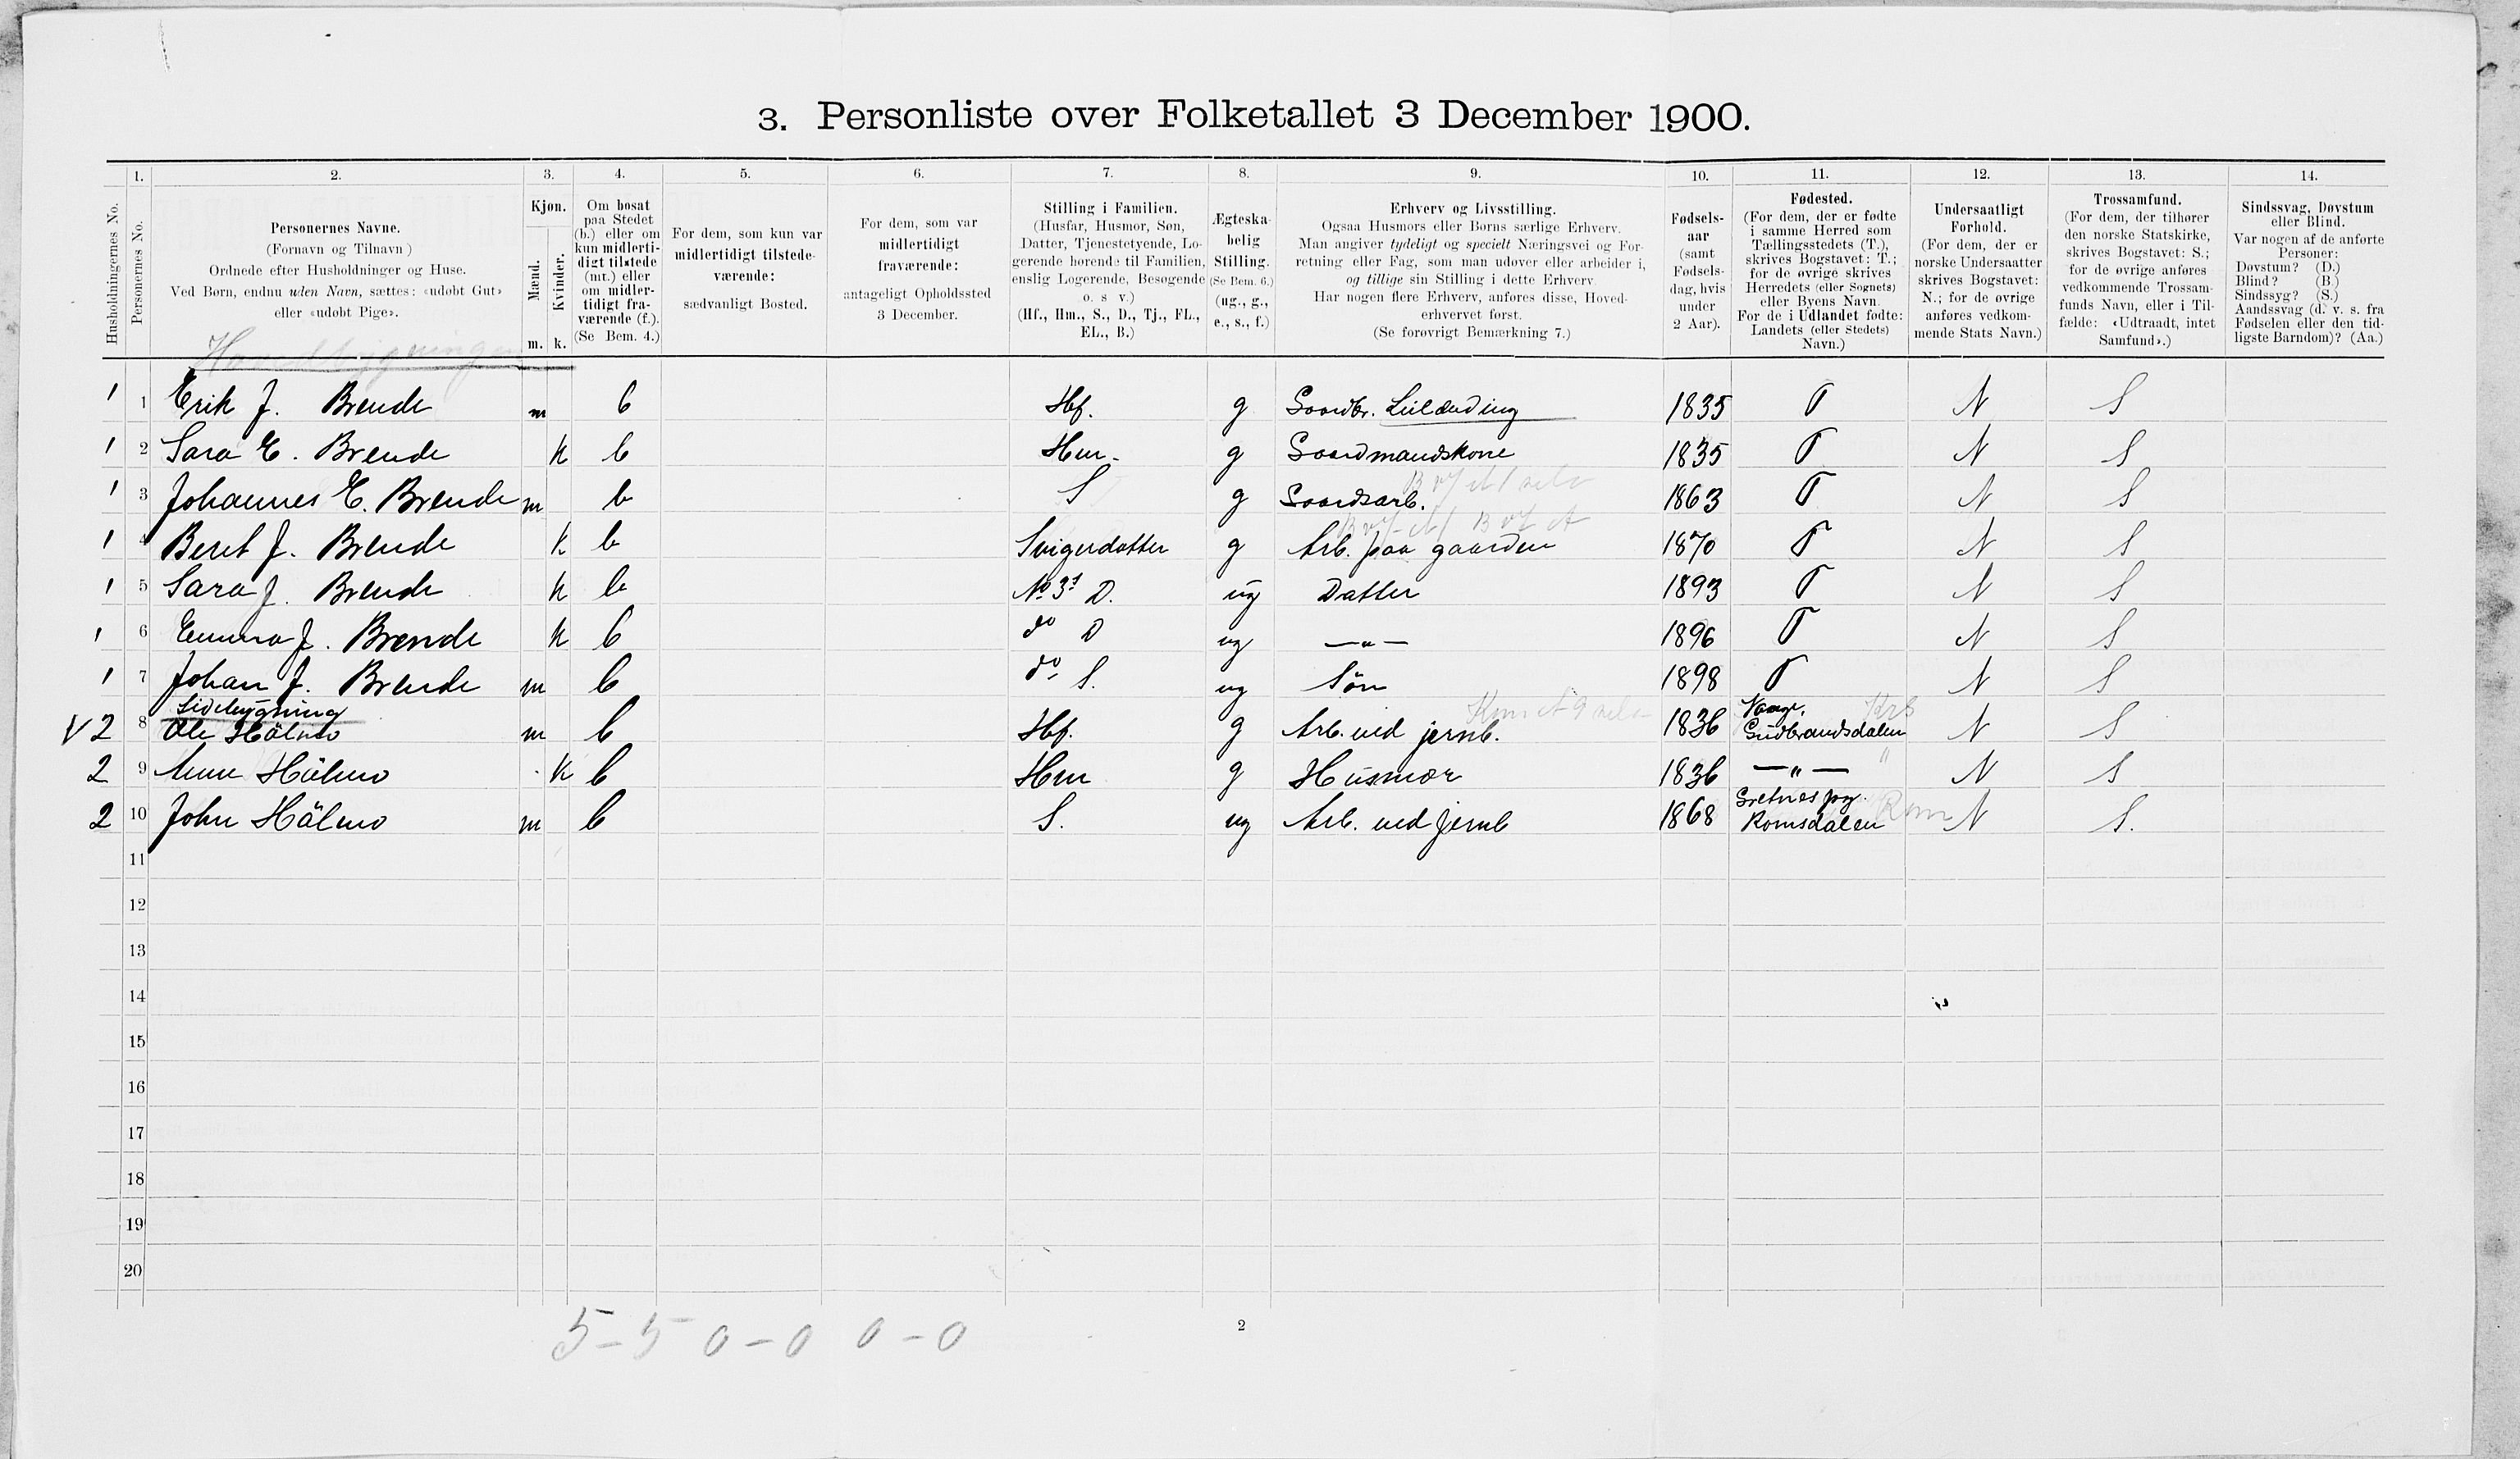 3. Personliste over Folketallet 3 December 1900.
Husholdningernes No.
1.
Personernes No.
2.
Personernes Navne.
(Fornavn og Tilnavn)
Ordnede efter Husholdninger og Huse.
Ved Børn, endnu uden Navn, sættes: «udøbt Gut»
eller «udøbt Pige».
3.
Kjøn.
Mænd.
Kvinder.
m. k.
4.
Om bosat
paa Stedet
(b.) eller om
kun midlerti-
digt tilstede
(mt.) eller
om midler-
tidigt fra-
værende (f.).
(Se Bem. 4.)
5.
For dem, som kun var
midlertidigt tilstede-
værende:
sædvanligt Bosted.
6.
For dem, som var
midlertidigt
fraværende:
antageligt Opholdssted
3 December.
7.
Stilling i Familien.
(Husfar, Husmor, Søn,
Datter, Tjenestetyende, Lo-
gerende hørende til Familien,
enslig Logerende, Besøgende
o. s v.)
(Hf., Hm., S., D., Tj., FL.,
EL., B.)
8.
Ægteska-
belig
Stilling.
(Se Bem. 6.)
(ug., g.,
e., s., f.)
9.
Erhverv og Livsstilling.
Ogsaa Husmors eller Børns særlige Erhverv.
Man angiver tydeligt og specielt Næringsvei og For-
retning eller Fag, som man udøver eller arbeider i,
og tillige sin Stilling i dette Erhverv
Har nogen flere Erhverv, anføres disse, Hoved-
erhvervet først.
(Se forøvrigt Bemærkning 7.)
10.
Fødsels-
aar
(samt
Fødsels-
dag, hvis
under
2 Aar).
11.
Fødested.
(For dem, der er fødte
i samme Herred som
Tællingsstedets (T.),
skrives Bogstavet: T.;
for de øvrige skrives
Herredets (eller Sognets)
eller Byens Navn.
For de i Udlandet fødte:
Landets (eller Stedets)
Navn.)
12.
Undersaatligt
Forhold.
(For dem, der er
norske Undersaatter
skrives Bogstavet:
N.; for de øvrige
anføres vedkom-
mende Stats Navn.)
13.
Trossamfund.
(For dem, der tilhører
den norske Statskirke,
skrives Bogstavet: S.;
for de øvrige anføres
vedkommende Trossam-
funds Navn, eller i Til-
fælde: «Udtraadt, intet
Samfund».)
14.
Sindssvag, Døvstum
eller Blind.
Var nogen af de anførte
Personer:
Døvstum? (D.)
Blind? (B.)
Sindssyg? (S.)
Aandssvag (d. v. s. fra
Fødselen eller den tid-
ligste Barndom)? (Aa.)
Hovedbygningen
1 1 Erik J. Brende m b Hf. g Gaardbr. Selveiend 1835 T N S
1 2 Sara E. Brende k b Hm. g Gaardmandskone 1835 T N S
1 3 Johannes E. Brende m b S g Gaardsarb. 1863 T N S
1 4 Beret J. Brende k b Svigerdatter g Arb. paa gaarden 1870 T N S
1 5 Sara J. Brende k b No 3s D. ug Datter 1893 T N S
1 6 Emma J. Brende k b do D ug —"— 1896 T N S
1 7 Johan J. Brende m b do S. ug Søn 1898 T N S
Sidebygning
V 2 8 Ole Hålmo m b Hf. g Arb. ved jernb. 1836 Gudbrandsdalen N S
2 9 Anne Hålmo k b Hm g Husmor 1836 —"— N S
2 10 John Hålmo m b S. ug Arb. ved jernb 1868 Romsdalen Rom N S.
11
12
13
14
15
16
17
18
19
20
5-5 0-0 0-0
2